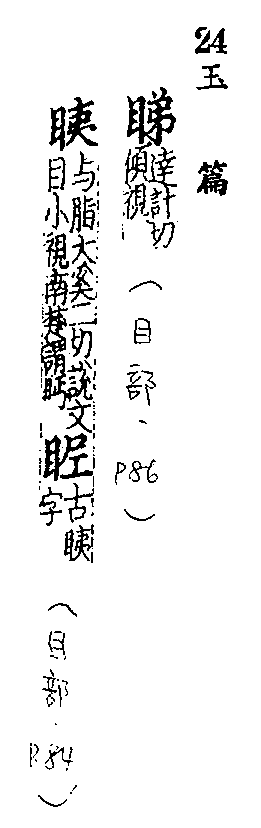 24玉篇
睇達計切
傾視
(目部、P86)
眱与脂大奚二切說文
目小視南楚謂眄
古眱
字
(目部.P.84)